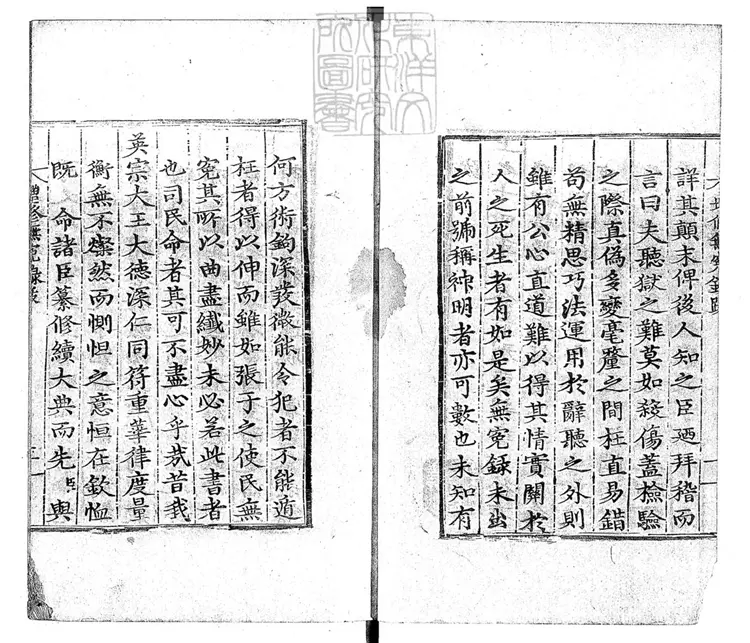 詳其顛末俾後人知之臣廼拜稽而
言曰夫聽獄之難莫如殺傷蓋檢驗
之際真偽多變毫釐之間枉直易錯
茍無精思巧法運用於辭聽之外則
雖有公心直道難以得其情實關於
人之死生者有如是矣無冤錄未出
之前號稱神明者亦可數也未知有
何方術鉤深發微能令犯者不能遁
枉者得以伸而雖如張于之使民無
冤其所以曲盡纖妙未必若此書者
也司民命者其可不盡心乎哉昔我
英宗大王大德深仁同符重華律度量
衡無不燦然而惻怛之意恒在欽恤
既 命諸臣纂修續大典而先臣與
增修無冤錄跋
東洋文化研究所圖書